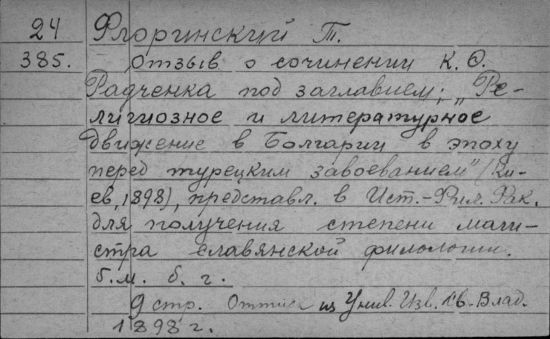 24 Флоринский Т.
385. Отзыв о сочинении К. Ѳ.
Радченка под заглавием; „Ре-
лигиозное и литературное
движение в Болгарии в эпоху
перед турецким завоеванием" (Ки-
ев, 1898), представл. в Ист.-Фил. Фак.
для получения степени маги-
стра славянской филологии.
б.м. б. г.
9 стр. Оттиск из Унив. Изв. Св. Влад.
1898 г.